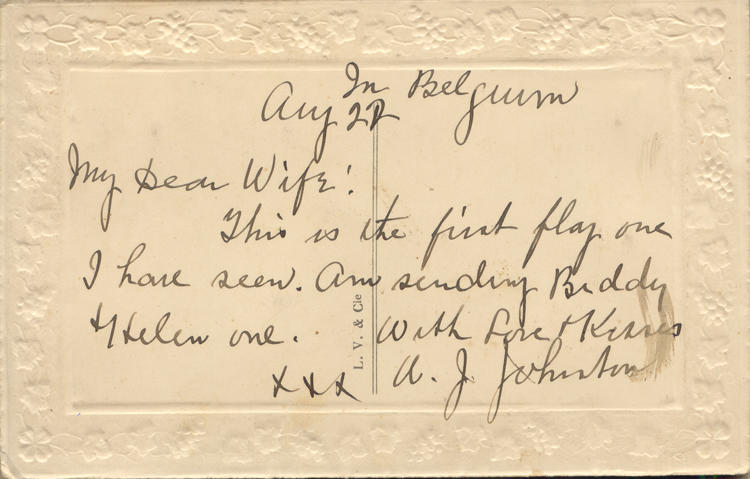 In Belgium
Aug 27
My Dear Wife!
This is the first flag one
I have seen. Am sending Biddy
+ Helen one. With Love + Kisses
xxx A. J. Johnston
L. V. & Cie